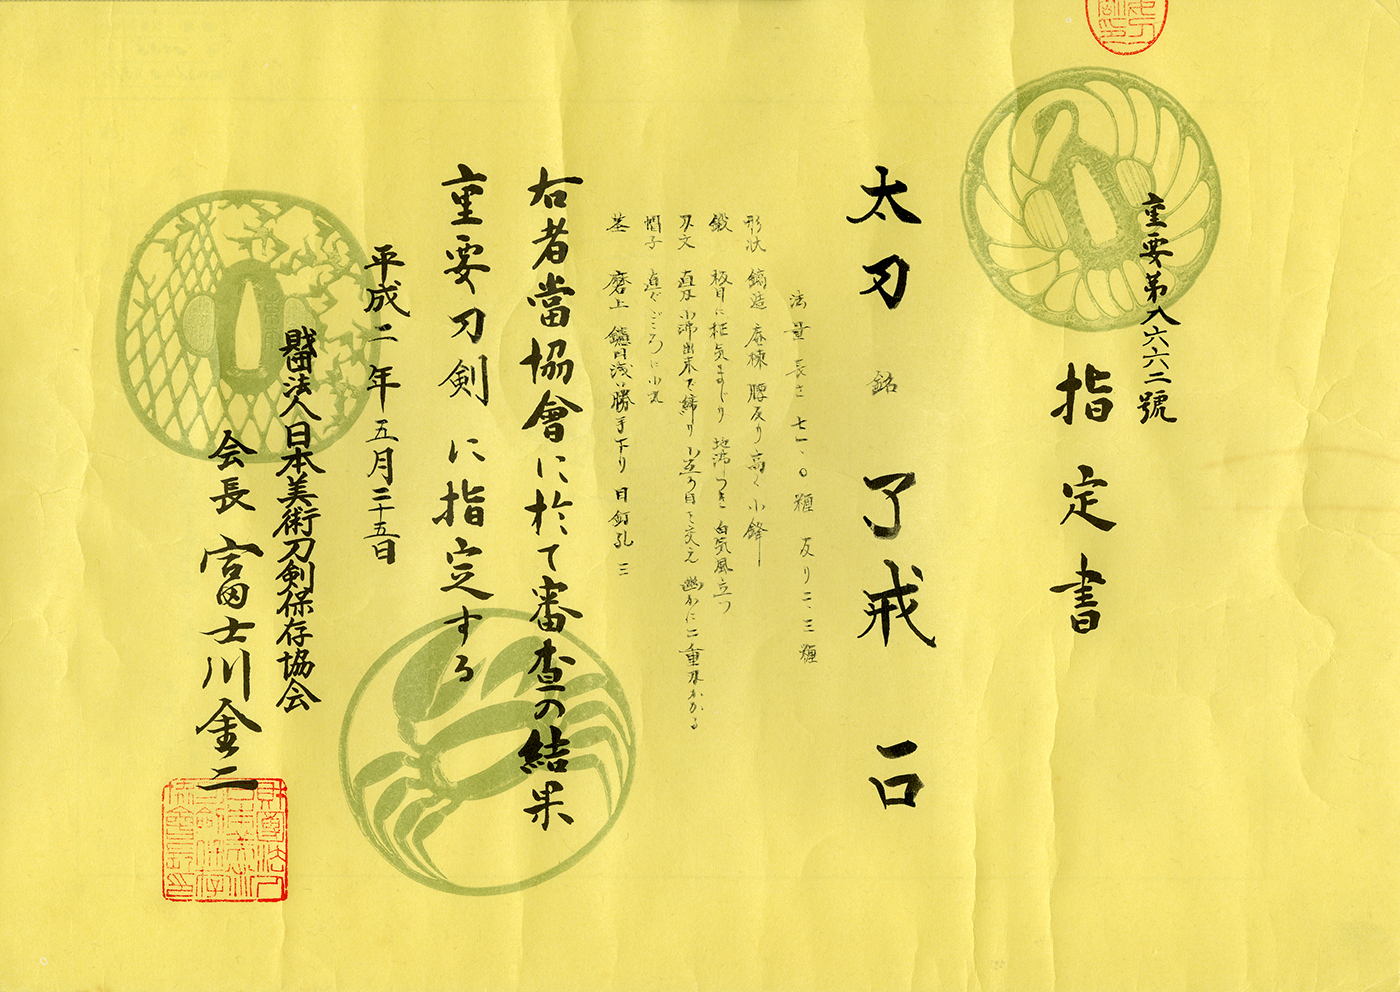 重要第八六六二號
指定書
太刀 銘 了戒 一口
法量 長さ 七一、〇糎 反り 二、三糎
形状 鎬造 庵棟 腰反り高く 小鋒
鍛 板目に柾気まじり 地沸つき 白気風立つ
刃文 直刃 小沸出来で締り 小互の目を交え 幽かに二重刃かかる
帽子 直ぐごころに小丸
茎 磨上 鑢目浅い勝手下り 目釘孔 三
右者當協會に於て審査の結果
重要刀剣に指定する
平成二年五月二十五日
財団法人日本美術刀剣保存協会
会長 富士川金二